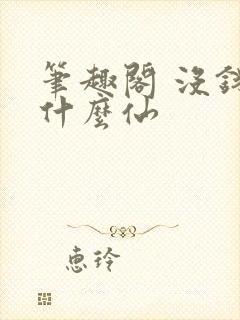 筆趣閣 沒錢
什麼仙
惠玲